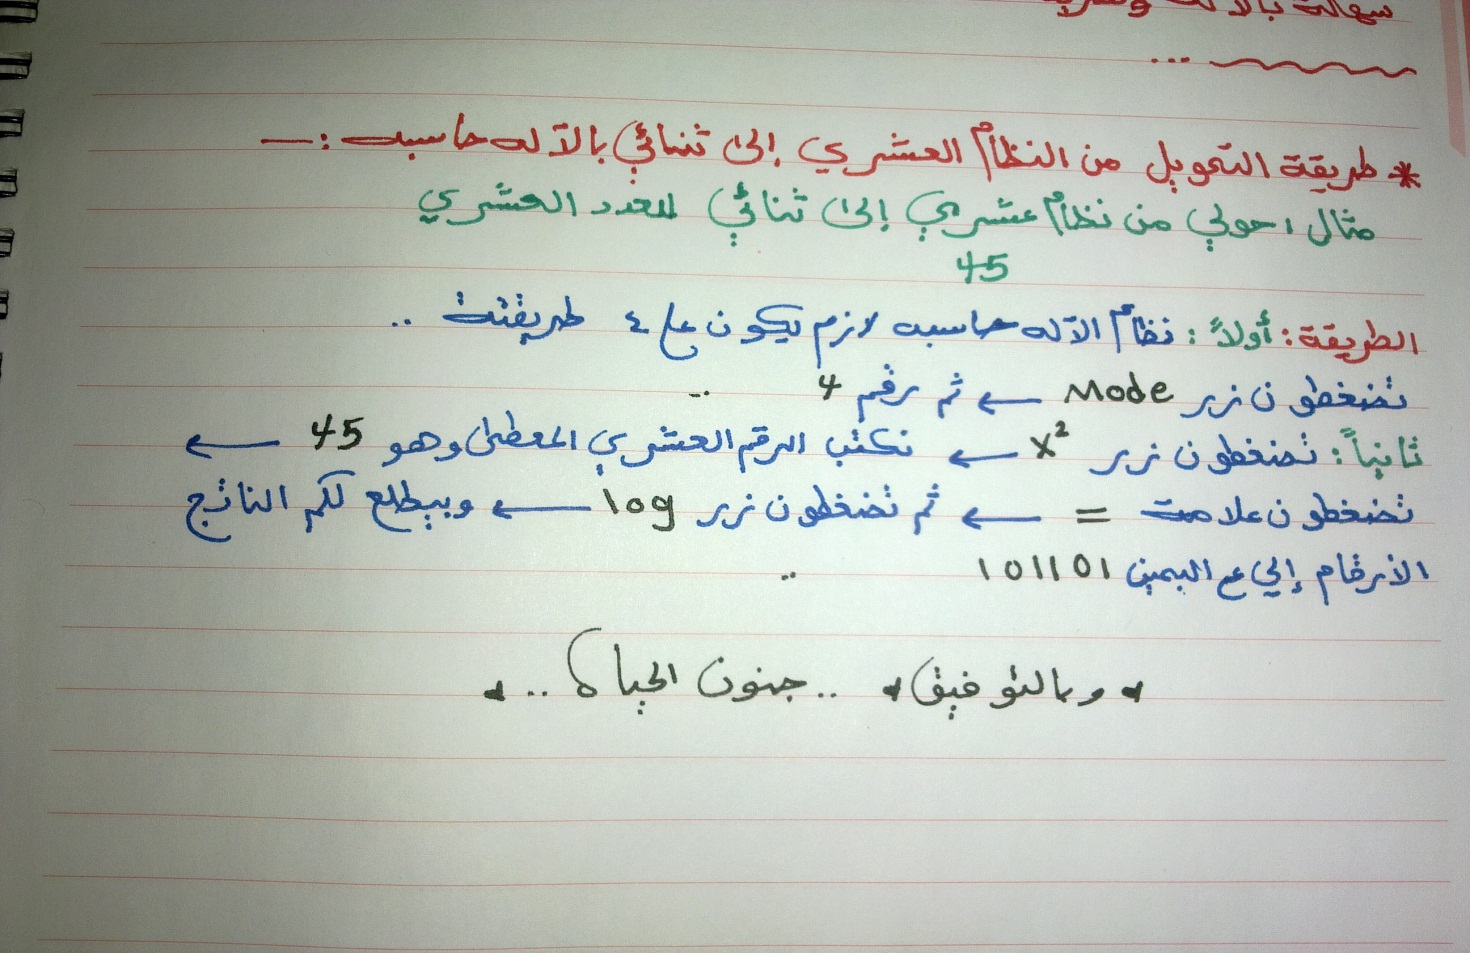 * طريقة التحويل من النظام العشري إلى ثنائي بالآله حاسبه :—
مثال احولي من نظام عشري إلى ثنائي للعدد العشري
45
الطريقة : أولاً : نظام الآله حاسبه لازم يكون ع 4 طريقته ..
تضغطون زر Mode ← ثم رقم 4 ..
ثانياً : تضغطون زر x² ← نكتب الرقم العشري المعطى وهو 45 ←
تضغطون علامت = ← ثم تضغطون زر log ← وبيطلع لكم الناتج
الأرقام إلي ع اليمين 101101 ..
وبالتوفيق .. جنون الحياة ..